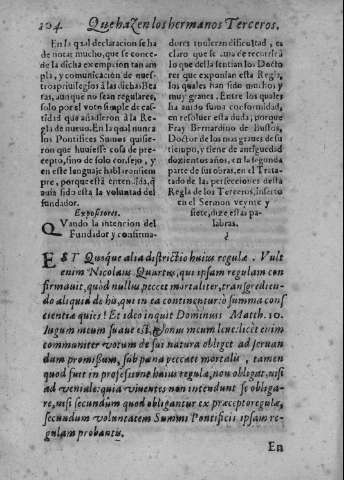 104. Que hazen los hermanos Terceros.
En la qual declaracion se ha
de notar mucho, que se conce-
de la dicha exempcion tan am
plia, y comunicacion de nues-
tros priuilegios à las dichas Bea
tas, aunque no sean regulares,
solo por el voto simple de cas-
tidad que añadieron à la Re-
gla de nueuo. En la qual nunca
los Pontifices Sumos quisie-
ron que huuiesse cosa de pre-
cepto, sino de solo consejo, y
en este lenguaje hablaron siem
pre, porque està entendido, q̃
quia sido esta la voluntad del
fundador.
Expositores.
QVando la intencion del
Fundador y confirma-
dores tuuiera dificultad, es
claro que se de recurrir à
lo que dello sentian los Docto
res que exponian esta Regla,
los quales han sido muchos y
muy graues. Entre los quales
ha auido suma conformidad,
en resoluer esta duda, porque
Fray Bernardino de Bustos,
Doctor de los mas graues de su
tiempo, y tiene de antiguedad
dozientos años, en la segunda
parte de sus obras, en el Trata-
tado de las perfecciones desta
Regla de los Terceros, inserto
en el Sermon veynte y
siete, dize estas pa-
labras.
EST Quoque alia districtio huius regulæ. Vult
enim Nicolaus Quartus, qui ipsam regulam con
firmauit, quòd nullus peccet mortaliter, transgredien-
do aliquid de his, qui in ea continentur: o summa cons
cientiæ quies! Et ideo inquit Dominus Matth. 10.
Iugum meum suaue est, & onus meum leue. licèt enim
communiter votum de sui natura obliget ad seruan
dum promissum, sub pœna peccati mortalis, tamen
quod fuit in professione huius regulæ, non obligat, nisi
ad veniale: quia vouentes non intendunt se obliga-
re, nisi secundùm quod obligantur ex præcepto regulæ,
secundum voluntatem Summi Pontificis ipsam re-
gulam probantis.
En